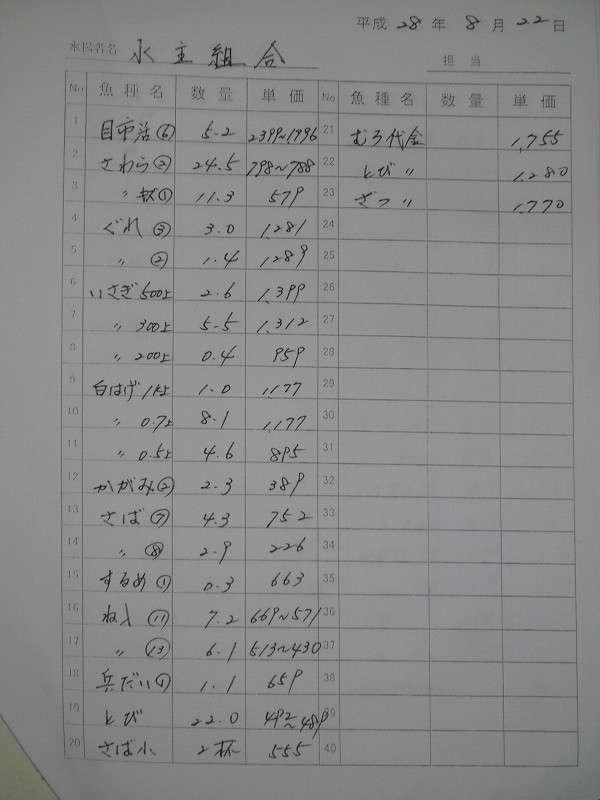 平成 28 年 8 月 22 日
水主組合
担当
No 魚種名 数量 単価 No 魚種名 数量 単価
1 目市活⑥ 5.2 2399~1,996 21 むろ代金 1,755
2 さわら② 24.5 798~788 22 とび〃 1,280
3 〃 ① 11.3 579 23 ざつ〃 1,770
4 ぐれ③ 3.0 1,281 24
5 〃 ② 1.4 1,289 25
6 いさぎ500上 2.6 1,399 26
7 〃 300上 5.5 1,312 27
8 〃 200上 0.4 959 28
9 白はげ1K上 1.0 1,177 29
10 〃 0.7上 8.1 1,177 30
11 〃 0.5上 4.6 895 31
12 かがみ② 2.3 389 32
13 さば⑦ 4.3 752 33
14 〃 ⑧ 2.9 226 34
15 するめ① 0.3 663 35
16 ね入⑪ 7.2 669~571 36
17 〃 ⑬ 6.1 513~430 37
18 兵だい① 1.1 659 38
19 とび 22.0 492~489 39
20 さば小 2杯 555 40